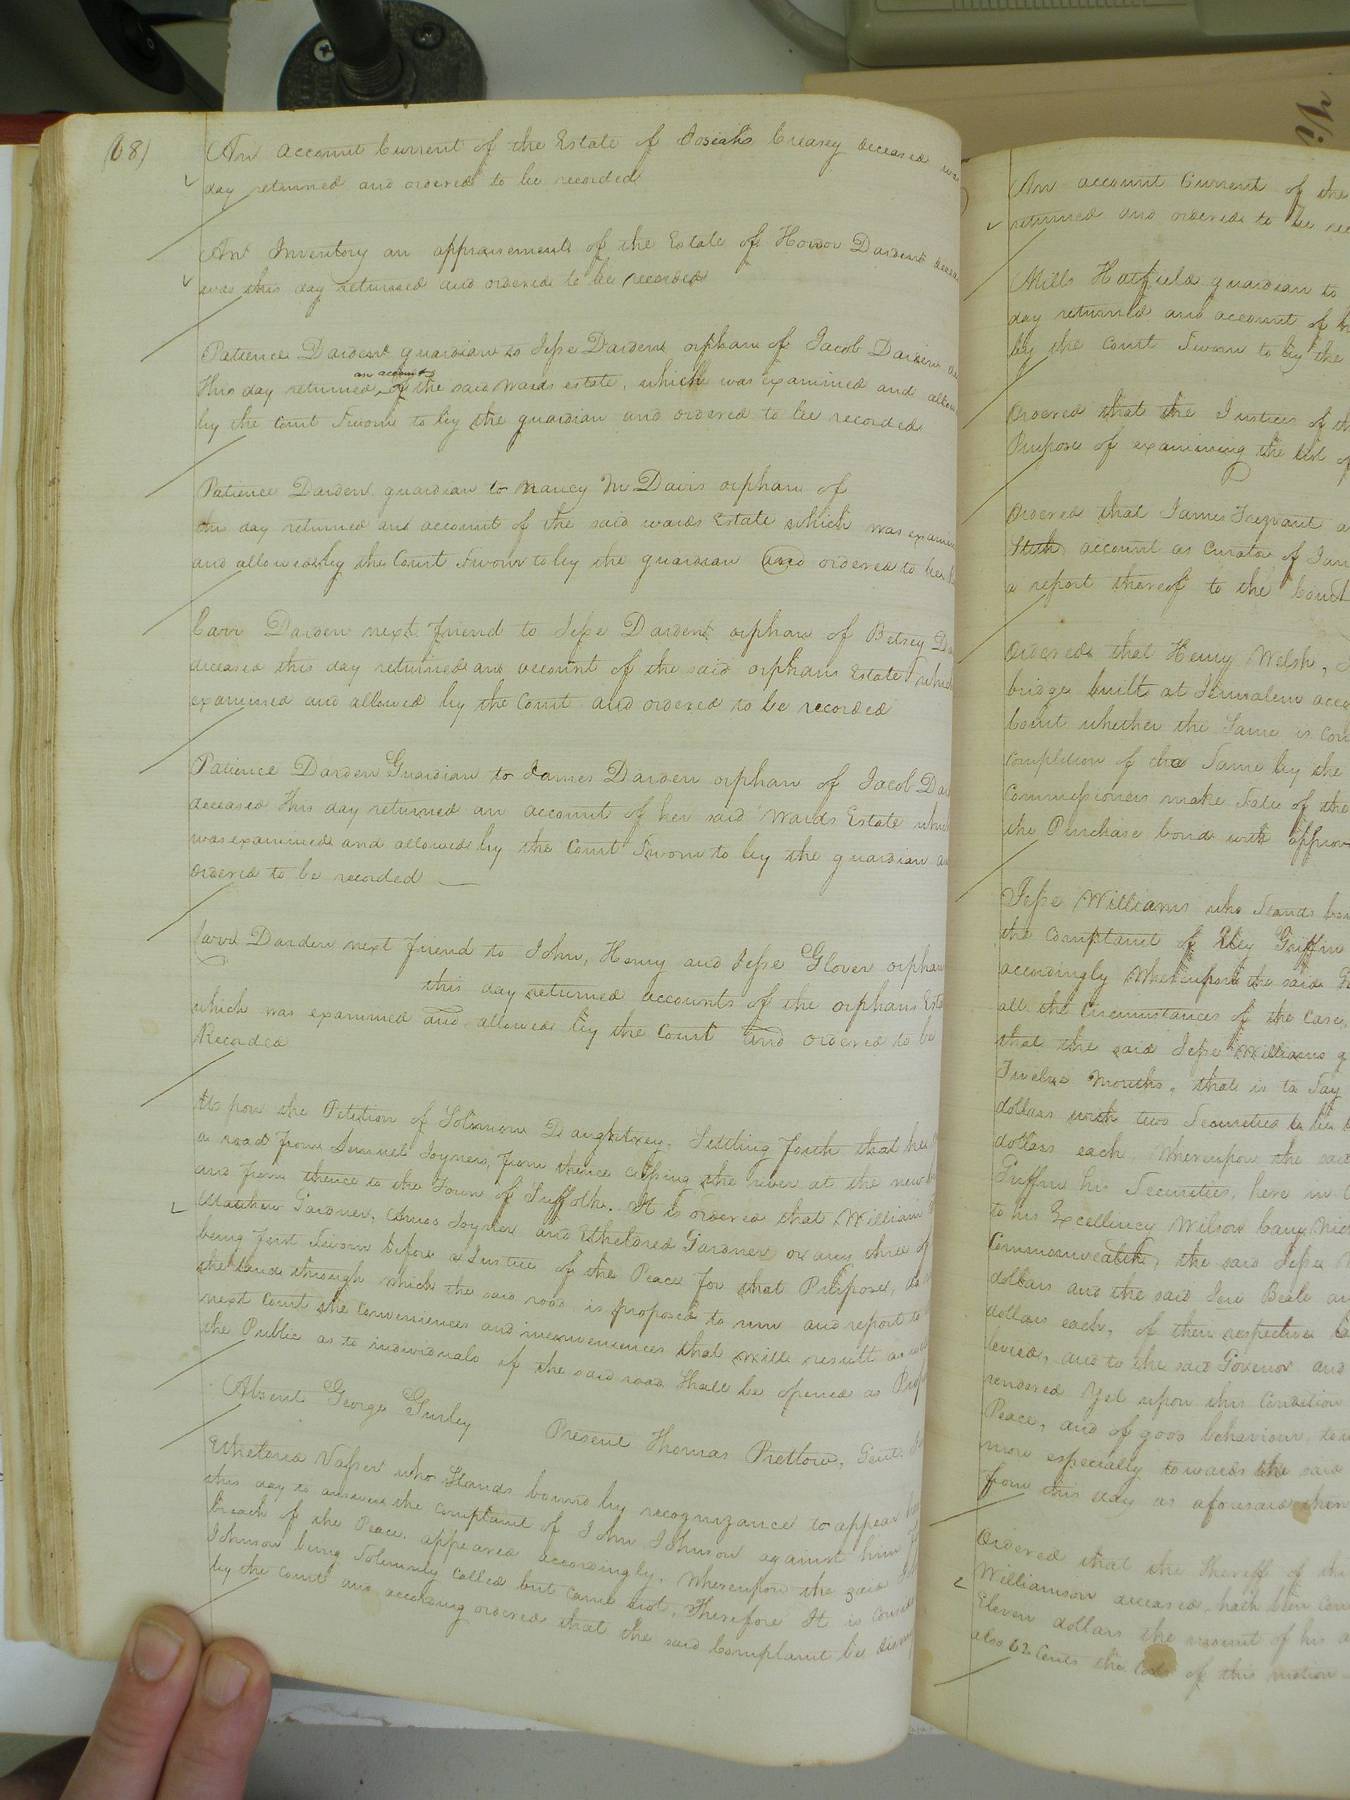 (68)
An account Current of the Estate of Josiah Creasy deceased was
day returned and ordered to be recorded
An Inventory an appraisement of the Estate of Honor Darden
was this day returned and ordered to be recorded
Patience Darden guardian to Jesse Darden orphan of Jacob Darden
an account
this day returned of the said wards estate, which was examined and
by the Court Sworn to by the guardian and ordered to be recorded
Patience Darden guardian to Nancy M Davis orphan of
this day returned and account of the said wards Estate which was
and allowed by the Court Sworn to by the guardian and ordered to be
Carr Darden next friend to Jesse Darden orphan of Betsey
deceased this day returned and account of the said orphans Estate
examined and allowed by the Court and ordered to be recorded
Patience Darden Guardian to James Darden orphan of Jacob
deceased this day returned an account of her said Wards Estate
was examined and allowed by the Court Sworn to by the guardian
ordered to be recorded
Carr Darden next friend to John, Henry and Jesse Glover
this day returned accounts of the orphans
which was examined and allowed by the Court and ordered to be
Recorded
Upon the Petition of Solomon Daughtrey, Setting forth that he
a road from Lemuel Joyners, from thence crossing the river at the new
and from thence to the Town of Suffolk. It is ordered that William
Matthew Gardner, Amos Joyner and Ethelored Gardner or any three of
being first Sworn before a Justice of the Peace for that Purpose, do
the lands through which the said road is proposed to run and report to
next Court the conveniences and inconveniences that will result as
the Public as to individuals if the said road Shall be opened as
Absent George Gurley
Present Thomas Pretlow, Gent.
Ethelored Vasser who Stands bound by recognizance to appear
this day to answer the complaint of John Johnson against him
breach of the Peace, appeared accordingly. Whereupon the said
Johnson being Solemnly called but came not, Therefore It is
by the Court and accordingly ordered that the said Complaint be
An account Current of the
returned and ordered to be
Mills Hatfield guardian to
day returned and account of
by the Court Sworn to by the
Ordered that the Justices of
Purpose of examining the list
Ordered that James Trezvant
account as Curator of
a report thereof to the Court
Ordered that Henry Welsh,
bridge built at Jerusalem
Court whether the Same is
Completion of the Same by the
Commissioners make Sale of the
the Purchase bond with
Jesse Williams who Stands
the complaint of Griffin
accordingly Whereupon the said
all the Circumstances of the Case,
that the said Jesse Williams
Twelve Months, that is to Say
dollars with two Securities
dollars each, Whereupon the said
Griffin his Securities, here in
to his Excellency Wilson Cary
Commonwealth, the said Jesse
dollars and the said Beale
dollars each, of their respective
levied, and to the said Govenor and
rendered Yet upon this Condition
Peace, and of good behaviour,
more especially towards the said
from this day as aforesaid
Ordered that the Sheriff of
Williamson deceased, hath been
Eleven dollars the amount of his
also 62 Cents the Cost of this motion